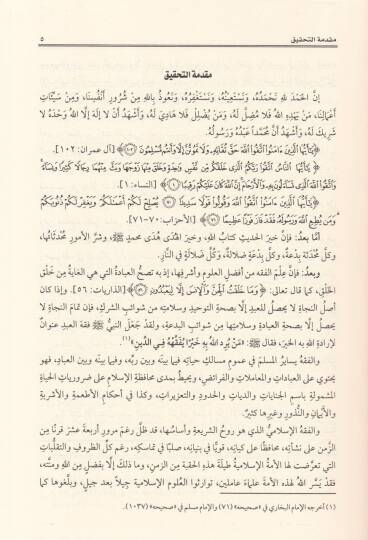 مقدمة التحقيق ٥
مقدمة التحقيق
إنَّ الحَمْدَ للهِ نَحْمَدُهُ، ونَسْتَعِينُهُ، ونَسْتَغْفِرُهُ، ونَعُوذُ بِاللهِ مِنْ شُرُورِ أَنْفُسِنَا، ومِنْ سَيِّئَاتِ
أَعْمَالِنَا، مَنْ يَهْدِهِ اللهُ فَلَا مُضِلَّ لَهُ، وَمَنْ يُضْلِلْ فَلَا هَادِيَ لَهُ، وَأَشْهَدُ أَنْ لَا إِلَهَ إِلَّا اللهُ وَحْدَهُ لَا
شَرِيكَ لَهُ، وَأَشْهَدُ أَنَّ مُحَمَّداً عَبْدُهُ وَرَسُولُهُ.
﴿يَٰٓأَيُّهَا ٱلَّذِينَ ءَامَنُوا۟ ٱتَّقُوا۟ ٱللَّهَ حَقَّ تُقَاتِهِۦ وَلَا تَمُوتُنَّ إِلَّا وَأَنتُم مُّسْلِمُونَ ﴿١٠٢﴾﴾ [آل عمران: ١٠٢].
﴿يَٰٓأَيُّهَا ٱلنَّاسُ ٱتَّقُوا۟ رَبَّكُمُ ٱلَّذِى خَلَقَكُم مِّن نَّفْسٍ وَٰحِدَةٍ وَخَلَقَ مِنْهَا زَوْجَهَا وَبَثَّ مِنْهُمَا رِجَالًا كَثِيرًا وَنِسَآءً
وَٱتَّقُوا۟ ٱللَّهَ ٱلَّذِى تَسَآءَلُونَ بِهِۦ وَٱلْأَرْحَامَ إِنَّ ٱللَّهَ كَانَ عَلَيْكُمْ رَقِيبًا ﴿١﴾﴾ [النساء: ١].
﴿يَٰٓأَيُّهَا ٱلَّذِينَ ءَامَنُوا۟ ٱتَّقُوا۟ ٱللَّهَ وَقُولُوا۟ قَوْلًا سَدِيدًا ﴿٧٠﴾ يُصْلِحْ لَكُمْ أَعْمَٰلَكُمْ وَيَغْفِرْ لَكُمْ ذُنُوبَكُمْ
وَمَن يُطِعِ ٱللَّهَ وَرَسُولَهُۥ فَقَدْ فَازَ فَوْزًا عَظِيمًا ﴿٧١﴾﴾ [الأحزاب: ٧٠-٧١].
أمَّا بعدُ: فإنَّ خيرَ الحديثِ كتابُ اللهِ، وخيرَ الهَدْيِ هَدْيُ محمدٍ ﷺ، وشرَّ الأمورِ مُحْدَثَاتُهَا،
وكلُّ مُحْدَثةٍ بِدعةٌ، وكلُّ بِدْعَةٍ ضلالةٌ، وكُلُّ ضَلَالَةٍ فِي النَّارِ.
وبعدُ: فإنَّ عِلْمَ الفقه من أفضلِ العلومِ وأشرفِها، إذ به تصحُّ العبادةُ التي هي الغايةُ مِن خَلْقِ
الخَلْقِ، كما قال تعالى: ﴿وَمَا خَلَقْتُ ٱلْجِنَّ وَٱلْإِنسَ إِلَّا لِيَعْبُدُونِ ﴿٥٦﴾﴾ [الذاريات: ٥٦]. وإذا كان
أصلُ النجاةِ لا يحصلُ للعبدِ إلَّا بصحةِ التوحيدِ وسلامتِه من شوائبِ الشركِ، فإنَّ تمامَ النجاةِ لا
يحصلُ إلَّا بصحةِ العبادةِ وسلامتِها من شوائبِ البدعةِ، ولقدْ جَعَلَ النبيُّ ﷺ فقهَ العبدِ عنوانًا
لإرادةِ اللهِ به الخيرَ، فقال ﷺ: «مَنْ يُرِدِ اللهُ بِهِ خَيْرًا يُفَقِّهْهُ فِي الدِّينِ»(١).
والفقهُ يسايرُ المسلمَ في عمومِ مسالكِ حياتِه فيما بينَه وبين ربِّه، وفيما بينَه وبين العبادِ، فهو
يحتوي على العباداتِ والمعاملاتِ والفرائضِ، ويحيطُ بمدى محافظةِ الإسلامِ على ضرورياتِ الحياةِ
المشمولةِ باسمِ الجناياتِ والدياتِ والحدودِ والتعزيراتِ، وكذا في أحكامِ الأطعمةِ والأشربةِ
والأيمانِ والنُّذورِ وغيرِها كثيرٌ.
والفقهُ الإسلاميُّ الذي هو روحُ الشريعةِ وأساسُها، قد ظلَّ رغمَ مرورِ أربعةَ عشرَ قرنًا مِن
الزَّمنِ على نشأتِه، محافظًا على كيانِه، قويًّا في بنيانِه، صلبًا في تماسكِه، رغم كلِّ الظروفِ والتقلُّباتِ
التي تعرَّضت لها الأمةُ الإسلاميةُ طيلةَ هذهِ الحقبةِ مِن الزمنِ، وما ذلكَ إلَّا بفضلٍ مِن اللهِ ومنَّته،
فقدْ يسَّرَ اللهُ لهذهِ الأمةِ علماءَ عاملين، توارثُوا العلومَ الإسلاميةَ جيلًا بعدَ جيلٍ، وبلَّغوها كما
(١) أخرجه الإمام البخاري في «صحيحه» (٧١) والإمام مسلم في «صحيحه» (١٠٣٧).